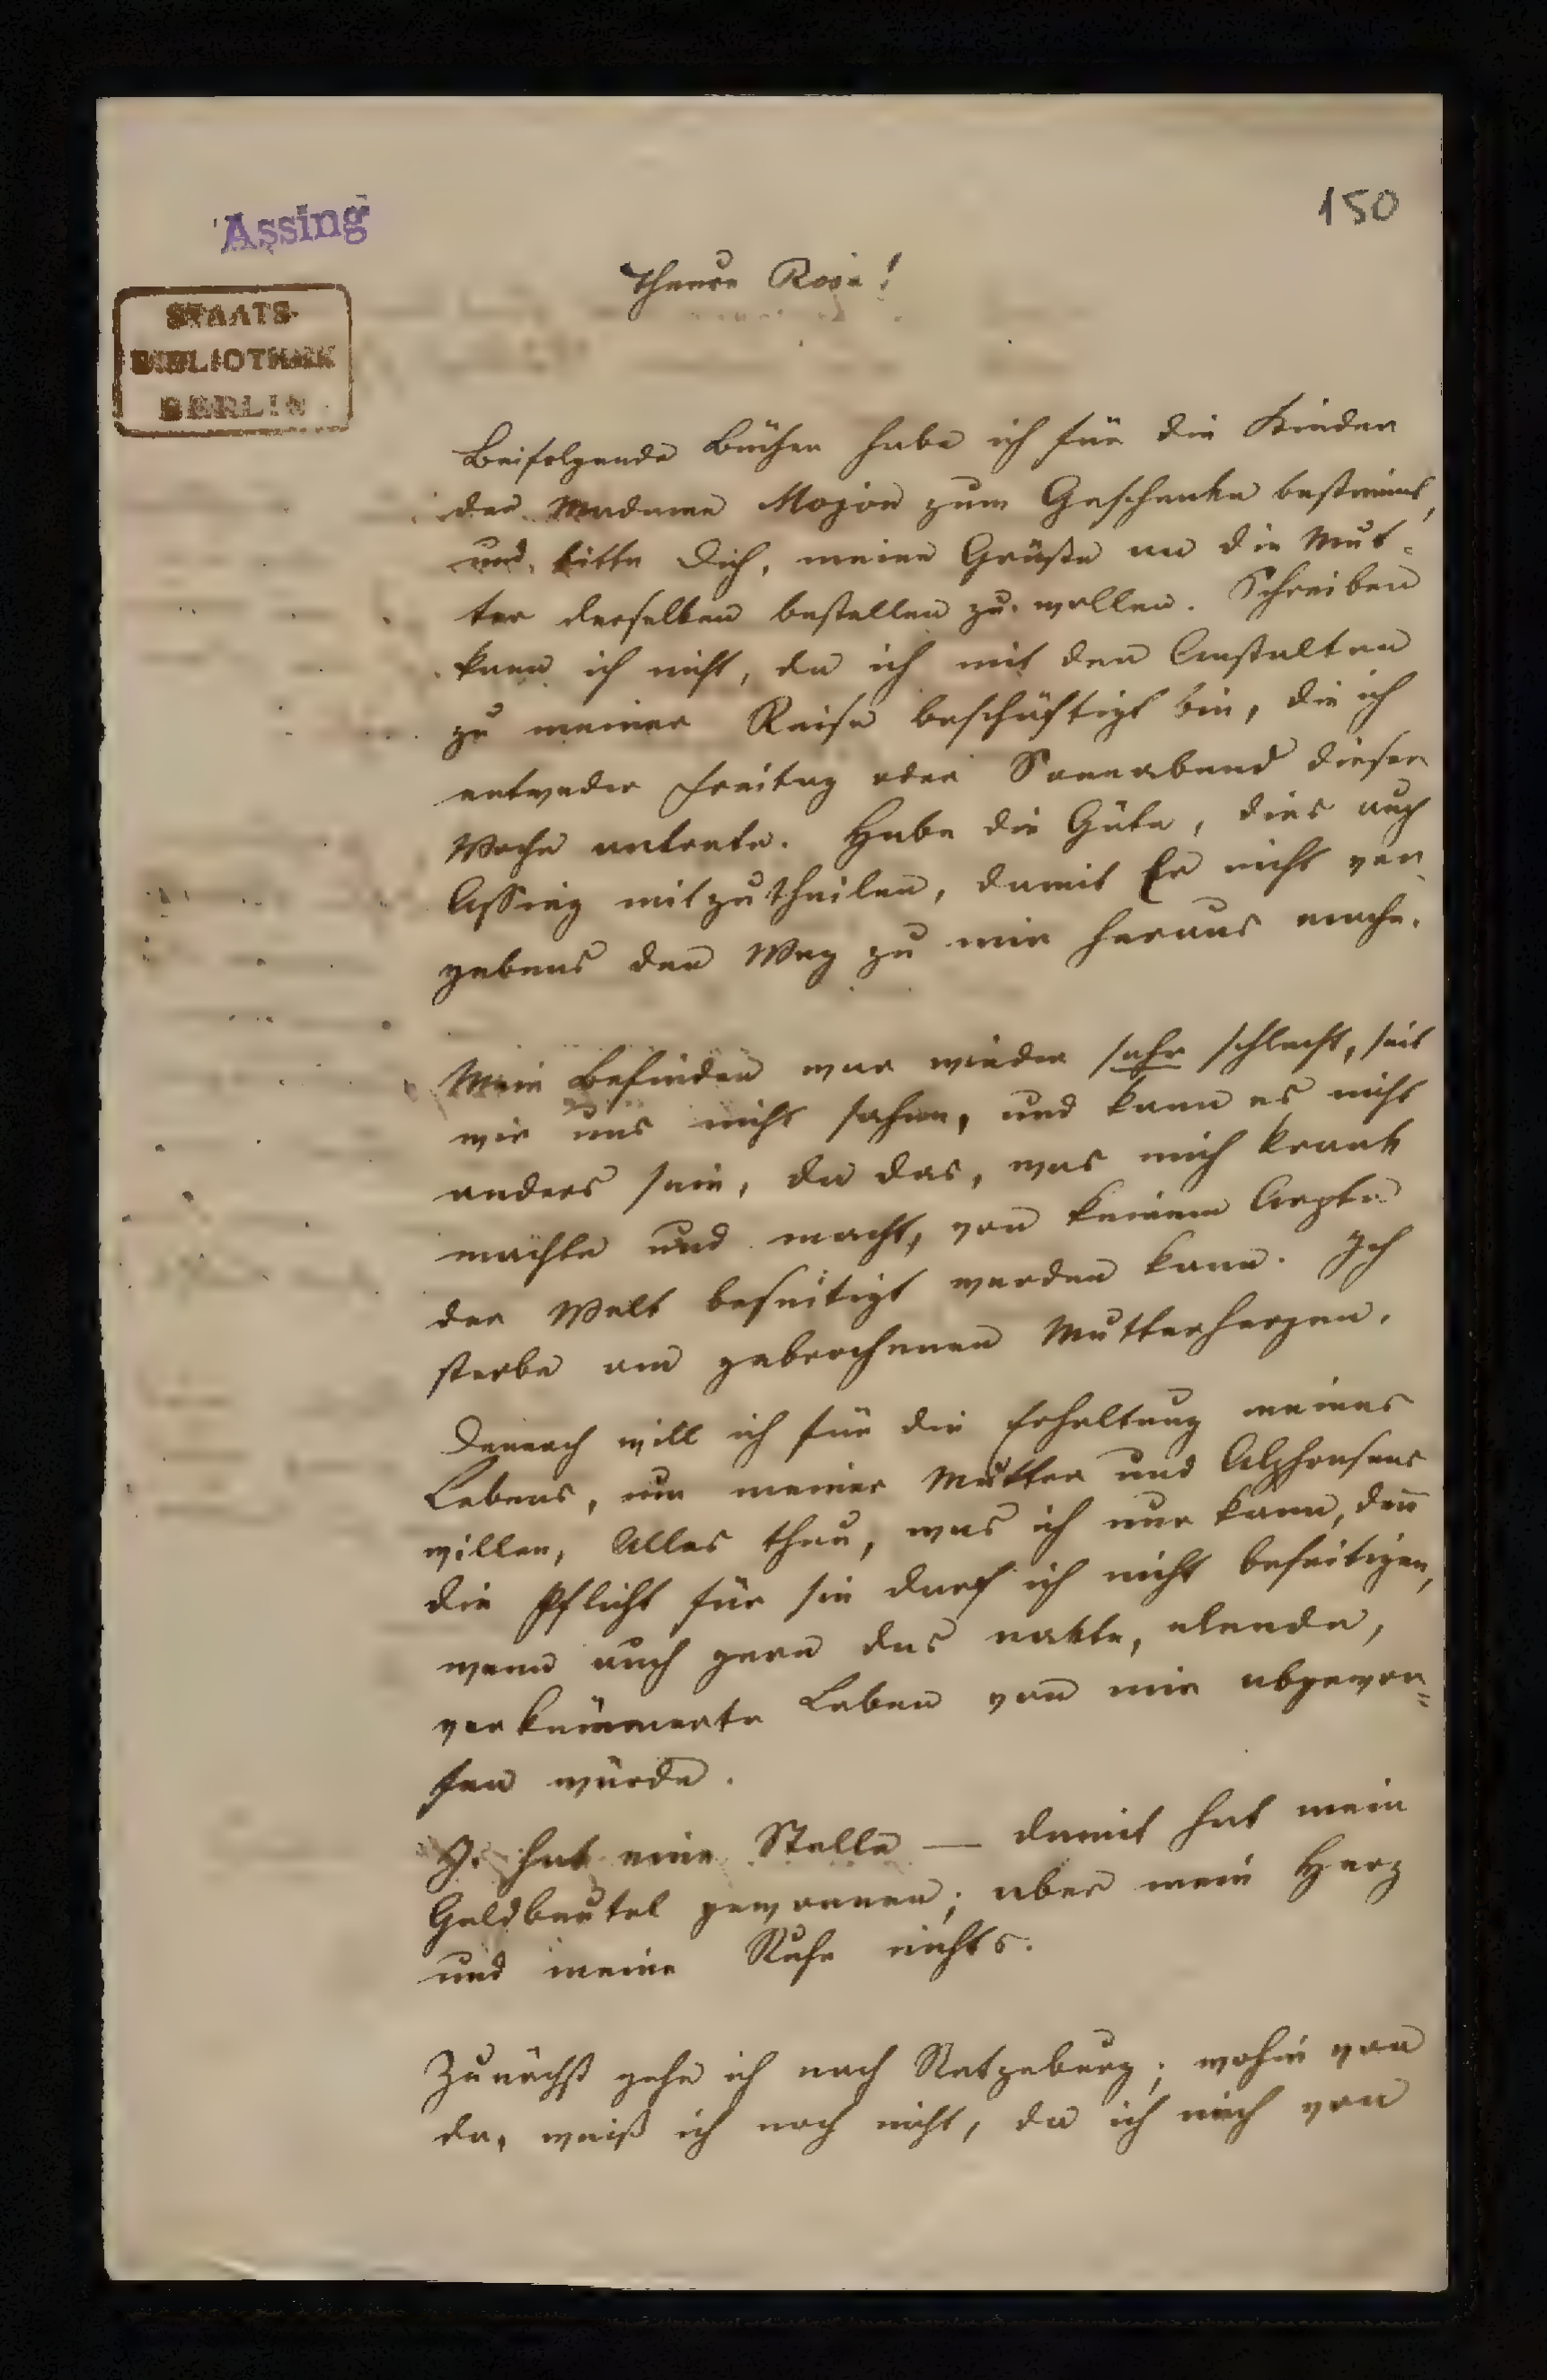 150
Assing
STAATS-
BIBLIOTHEK
BERLIN
Theure Rosa!
Beifolgende Bücher habe ich für die Kinder
der Madame Mojon zum Geschenke bestimmt,
und bitte Dich, meine Grüße an die Mut-
ter derselben bestellen zu wollen. Schreiben
kann ich nicht, da ich mit den Anstalten
zu meiner Reise beschäftigt bin, die ich
entweder Freitag oder Sonnabend dieser
Woche antrete. Habe die Güte, dies auch
Assing mitzutheilen, damit Er nicht ver-
gebens den Weg zu mir heraus mache.
Mein Befinden war wieder sehr schlecht, seit
wir uns nicht sahen, und kann es nicht
anders sein, da das, was mich krank
machte und macht, von keinem Arzte
der Welt beseitigt werden kann. Ich
sterbe am gebrochenen Mutterherzen.
Dennoch will ich für die Erhaltung meines
Lebens, um meiner Mutter und Alphonsens
willen, Alles thun, was ich nur kann, den̅
die Pflicht für sie darf ich nicht beseitigen,
wenn auch gern das nakte, elende,
verkümmerte Leben von mir abgewor=
fen würde.
J. hat eine Stelle — damit hat mein
Geldbeutel gewonnen; aber mein Herz
und meine Ruhe nichts.
Zunächst gehe ich nach Ratzeburg; wohin von
da, weiß ich noch nicht, da ich mich von